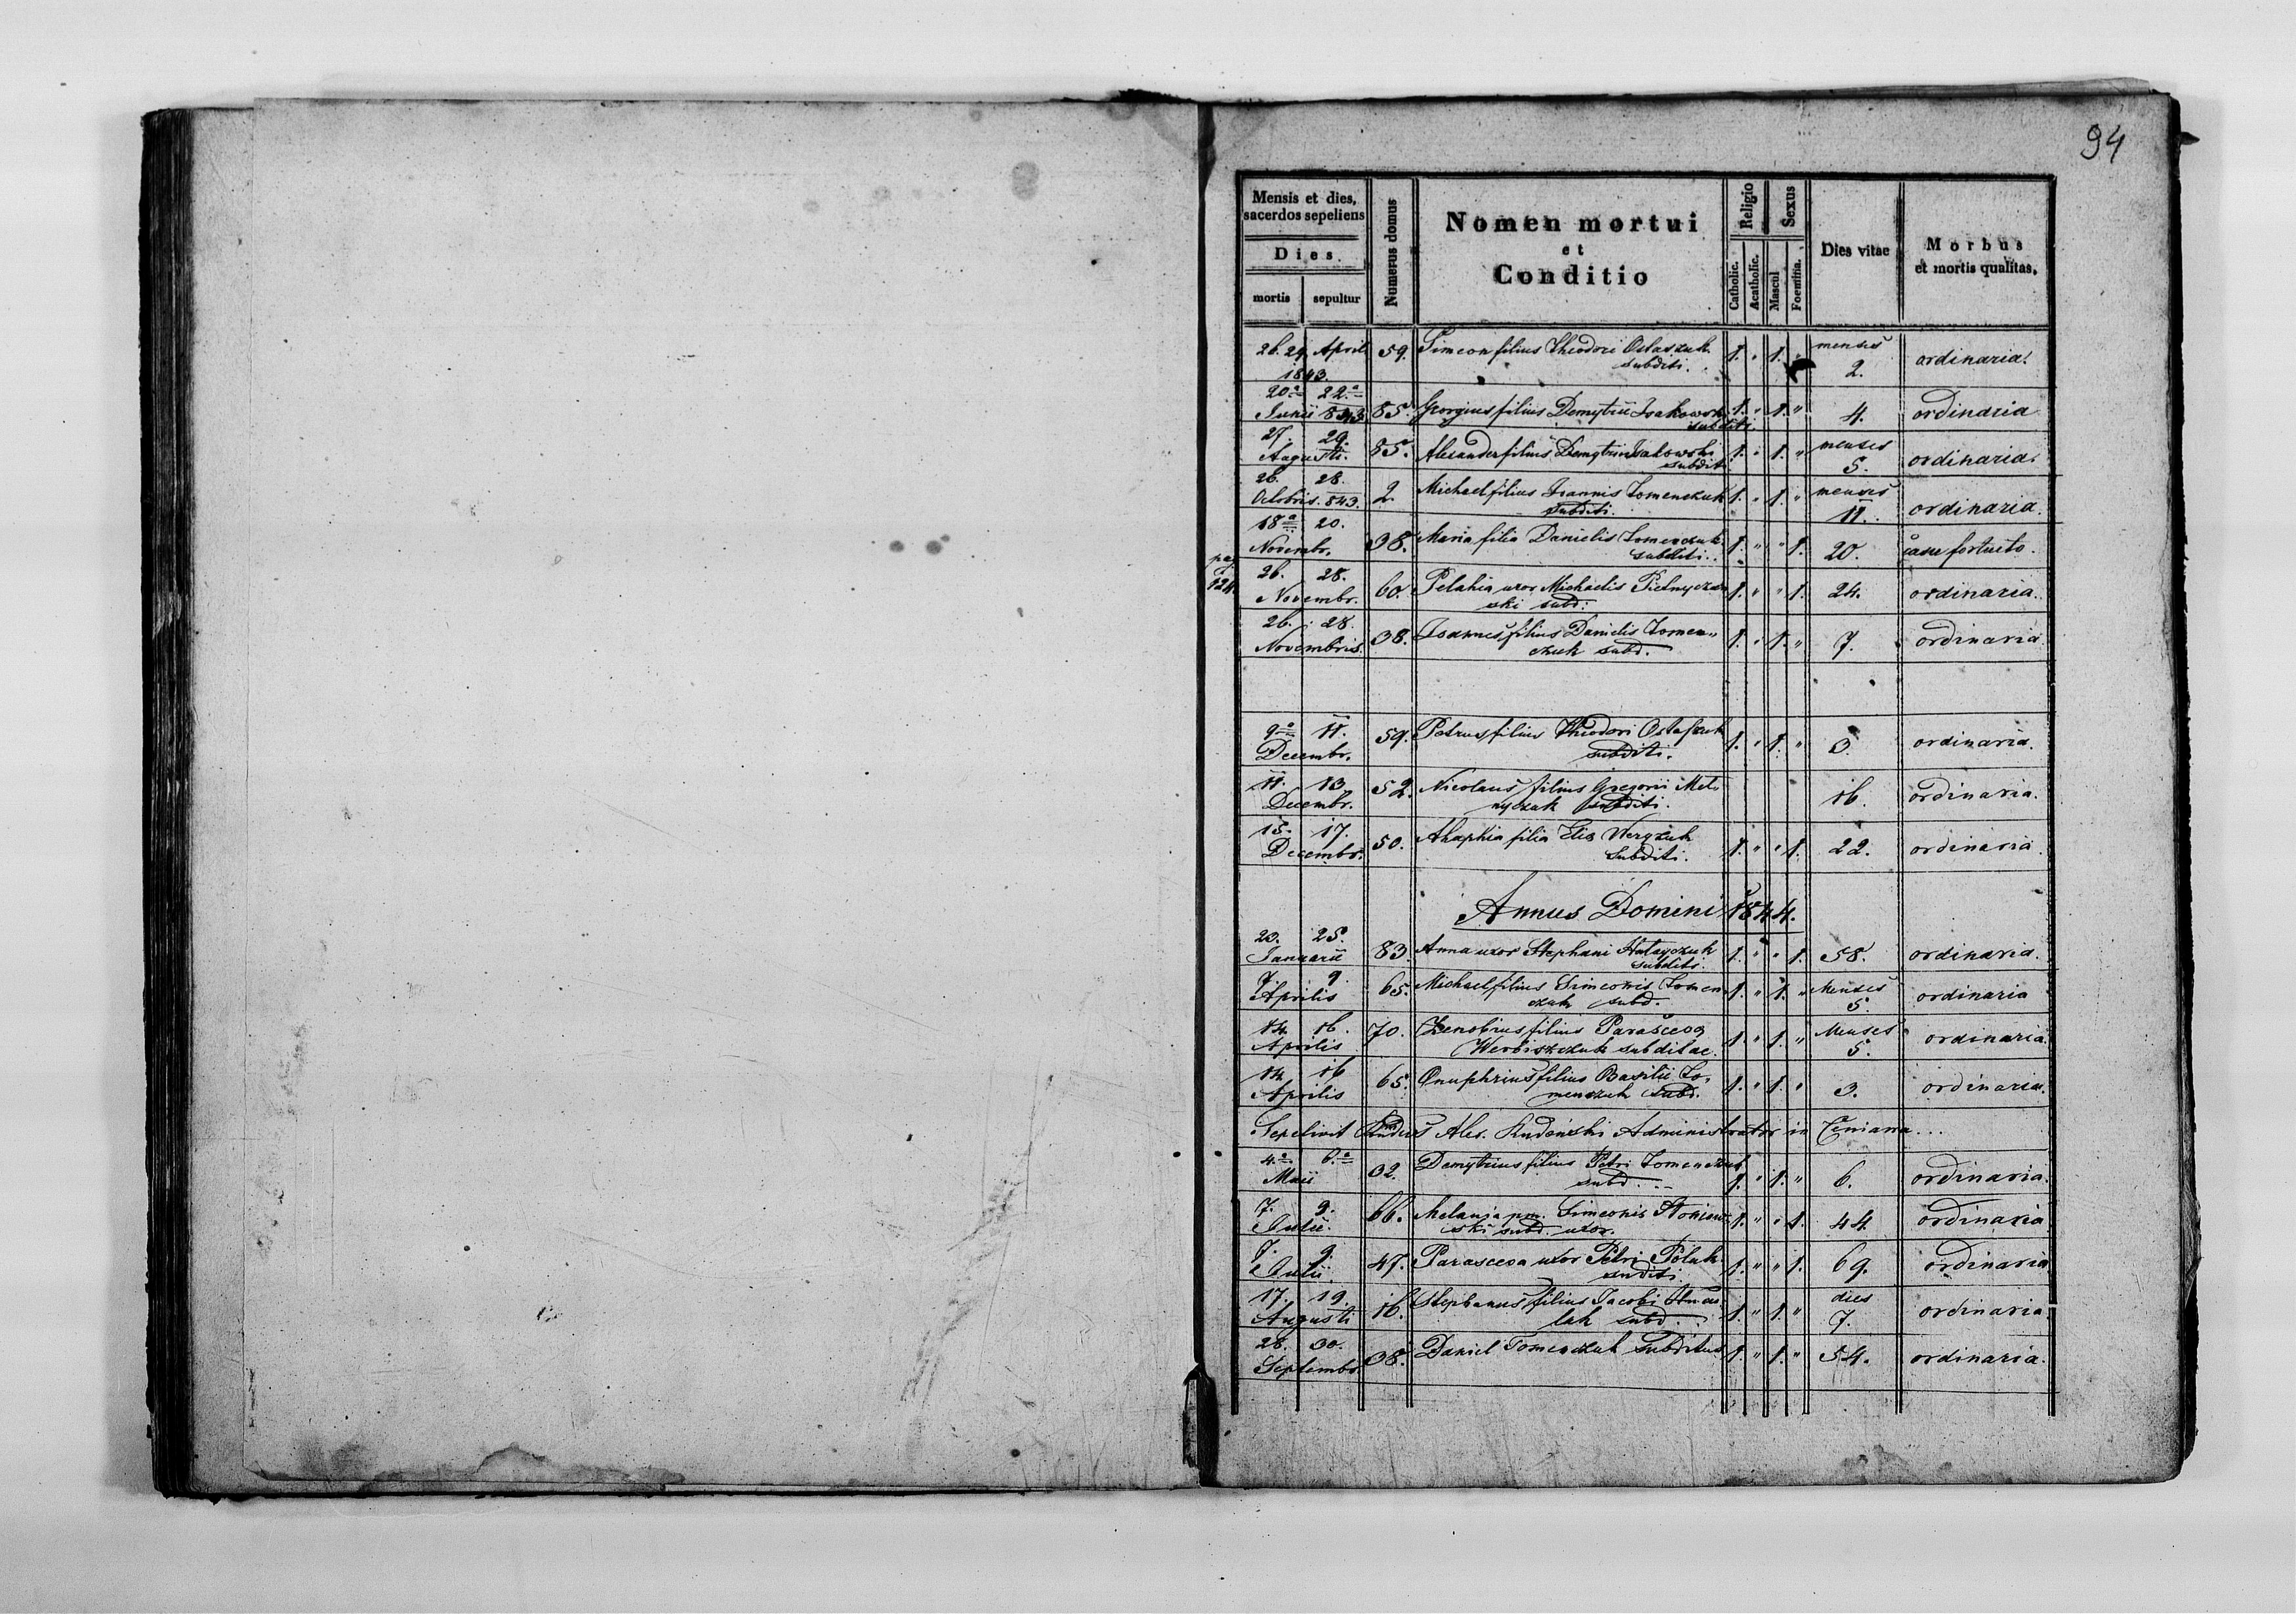 94
Mensis et dies, sacerdos sepeliens
Dies
mortis sepultur
Numerus domus
Nomen mortui
et
Conditio
Religio
Catholic. Acatholic.
Sexus
Mascul Foemina.
Dies vitae
Morbus
et mortis qualitas.
26. 29. April 59. Simeon filius Theodori Ostaszuk 1. " 1. " menses ordinaria.
1843. subditi. 2.
20a 22a
Junii 843 85. Georgius filius Demytrii Isakowski 1. " 1. " 4. ordinaria
subditi
27. 29. menses
Augusti. 85. Alexander filius Demytrii Isakowski 1. " 1. " 5. ordinaria.
subditi
26. 28. menses
Octobris. 843. 2. Michael filius Joannis Tomenczuk 1. " 1. " 11. ordinaria.
subditi.
18a 20.
Novembr. 38. Maria filia Danielis Tomenczuk 1. " " 1. 20. casu fortuito.
subditi.
pag
124.
26. 28.
Novembr. 60. Pelahia uxor Michaelis 1. " " 1. 24. ordinaria.
ski subd:
26. 28.
Novembris. 38. Joannes filius Danielis Tomen„ 1. " 1. " 7. ordinaria
czuk subd.
9a 11.
Decembr. 59. Petrus filius Theodori Ostaszuk 1. " 1. " 3. ordinaria.
subditi.
11. 13.
Decembr. 52. Nicolaus filius Gregorii Mel„ 16. ordinaria.
nyczuk subditi.
15. 17.
Decembr. 50. Ahaphia filia Elis 1. " " 1. 22. ordinaria
subditi.
Annus Domini 1844.
23. 25.
Januarii 83. Anna uxor Stephani 1. " " 1. 58. ordinaria.
subditi.
7. 9. Menses
Aprilis 65. Michael filius Simeonis Tomen 1. " 1. " 5. ordinaria
czuk subd.
14. 16. Menses
Aprilis 70. Zenobius filius Parasceva 1. " 1. " 5. ordinaria.
Werbiszczuk subditae.
14. 16
Aprilis 65. Onuphrius filius Basilii To„ 1. " 1. " 3. ordinaria.
menczuk subd.
Sepelivit Alex. Administrator in Ceniawa...
4a 6.a
Maii 32. Demytrius filius Petri Tomenczuk 1. " 1. " 6. ordinaria.
subd.
7. 9.
Julii. 66. Melania pm. Simeonis 1. " " 1. 44. ordinaria
ski subd. uxor.
7. 9.
Julii 47. Parasceva uxor Petri Poluk 1. " " 1. 69. ordinaria
subditi.
17. 19. dies
Augusti 16. Stephanus filius Jacobi 1. " 1. " 7. ordinaria
lak subd.
28. 30.
Septembr. 38. Daniel Tomenczuk subditus 1. " 1. " 54. ordinaria.